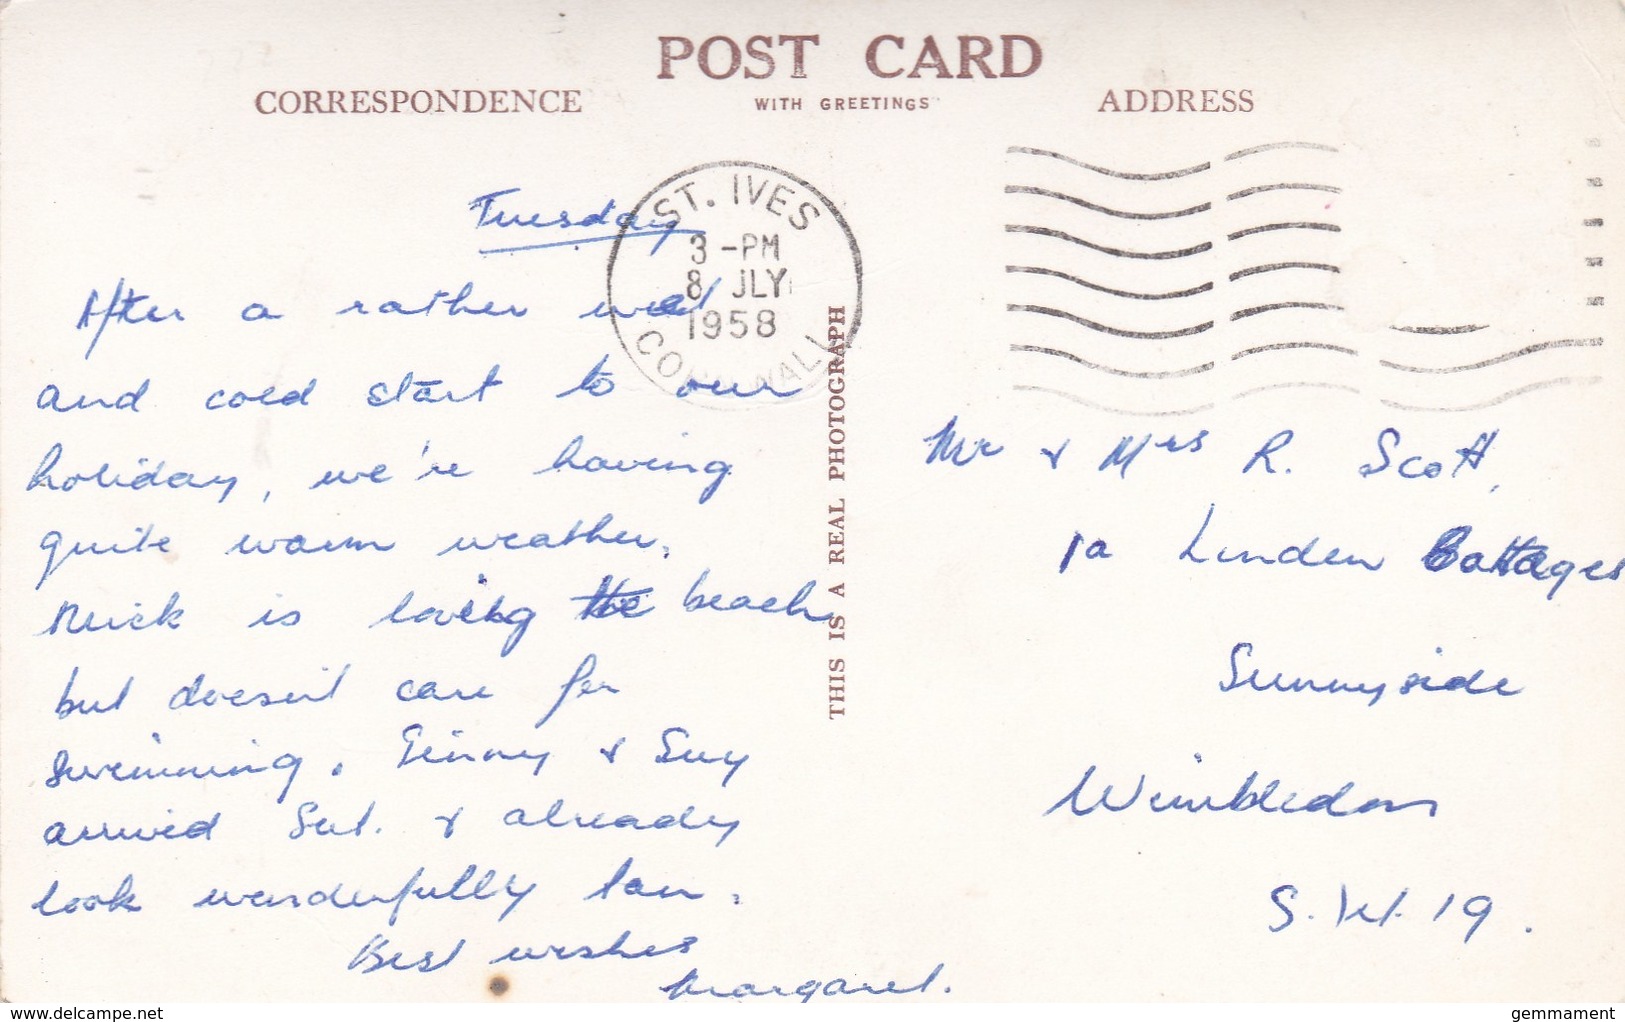 POST CARD
CORRESPONDENCE
WITH GREETINGS
ADDRESS
ST. IVES
3 -PM
8 JLY
1958
CORNWALL
THIS IS A REAL PHOTOGRAPH
Tuesday
After a rather wet
and cold start to our
holiday, we're having
quite warm weather.
Nick is loving the beach
but doesn't care for
swimming. Ginny & Suzy
arrived Sat. & already
look wonderfully tan.
Best wishes
Margaret.
Mr & Mrs R. Scott,
1a Linden Cottages
Sunnyside
Wimbledon
S.W.19.
delcampe.net
gemmament